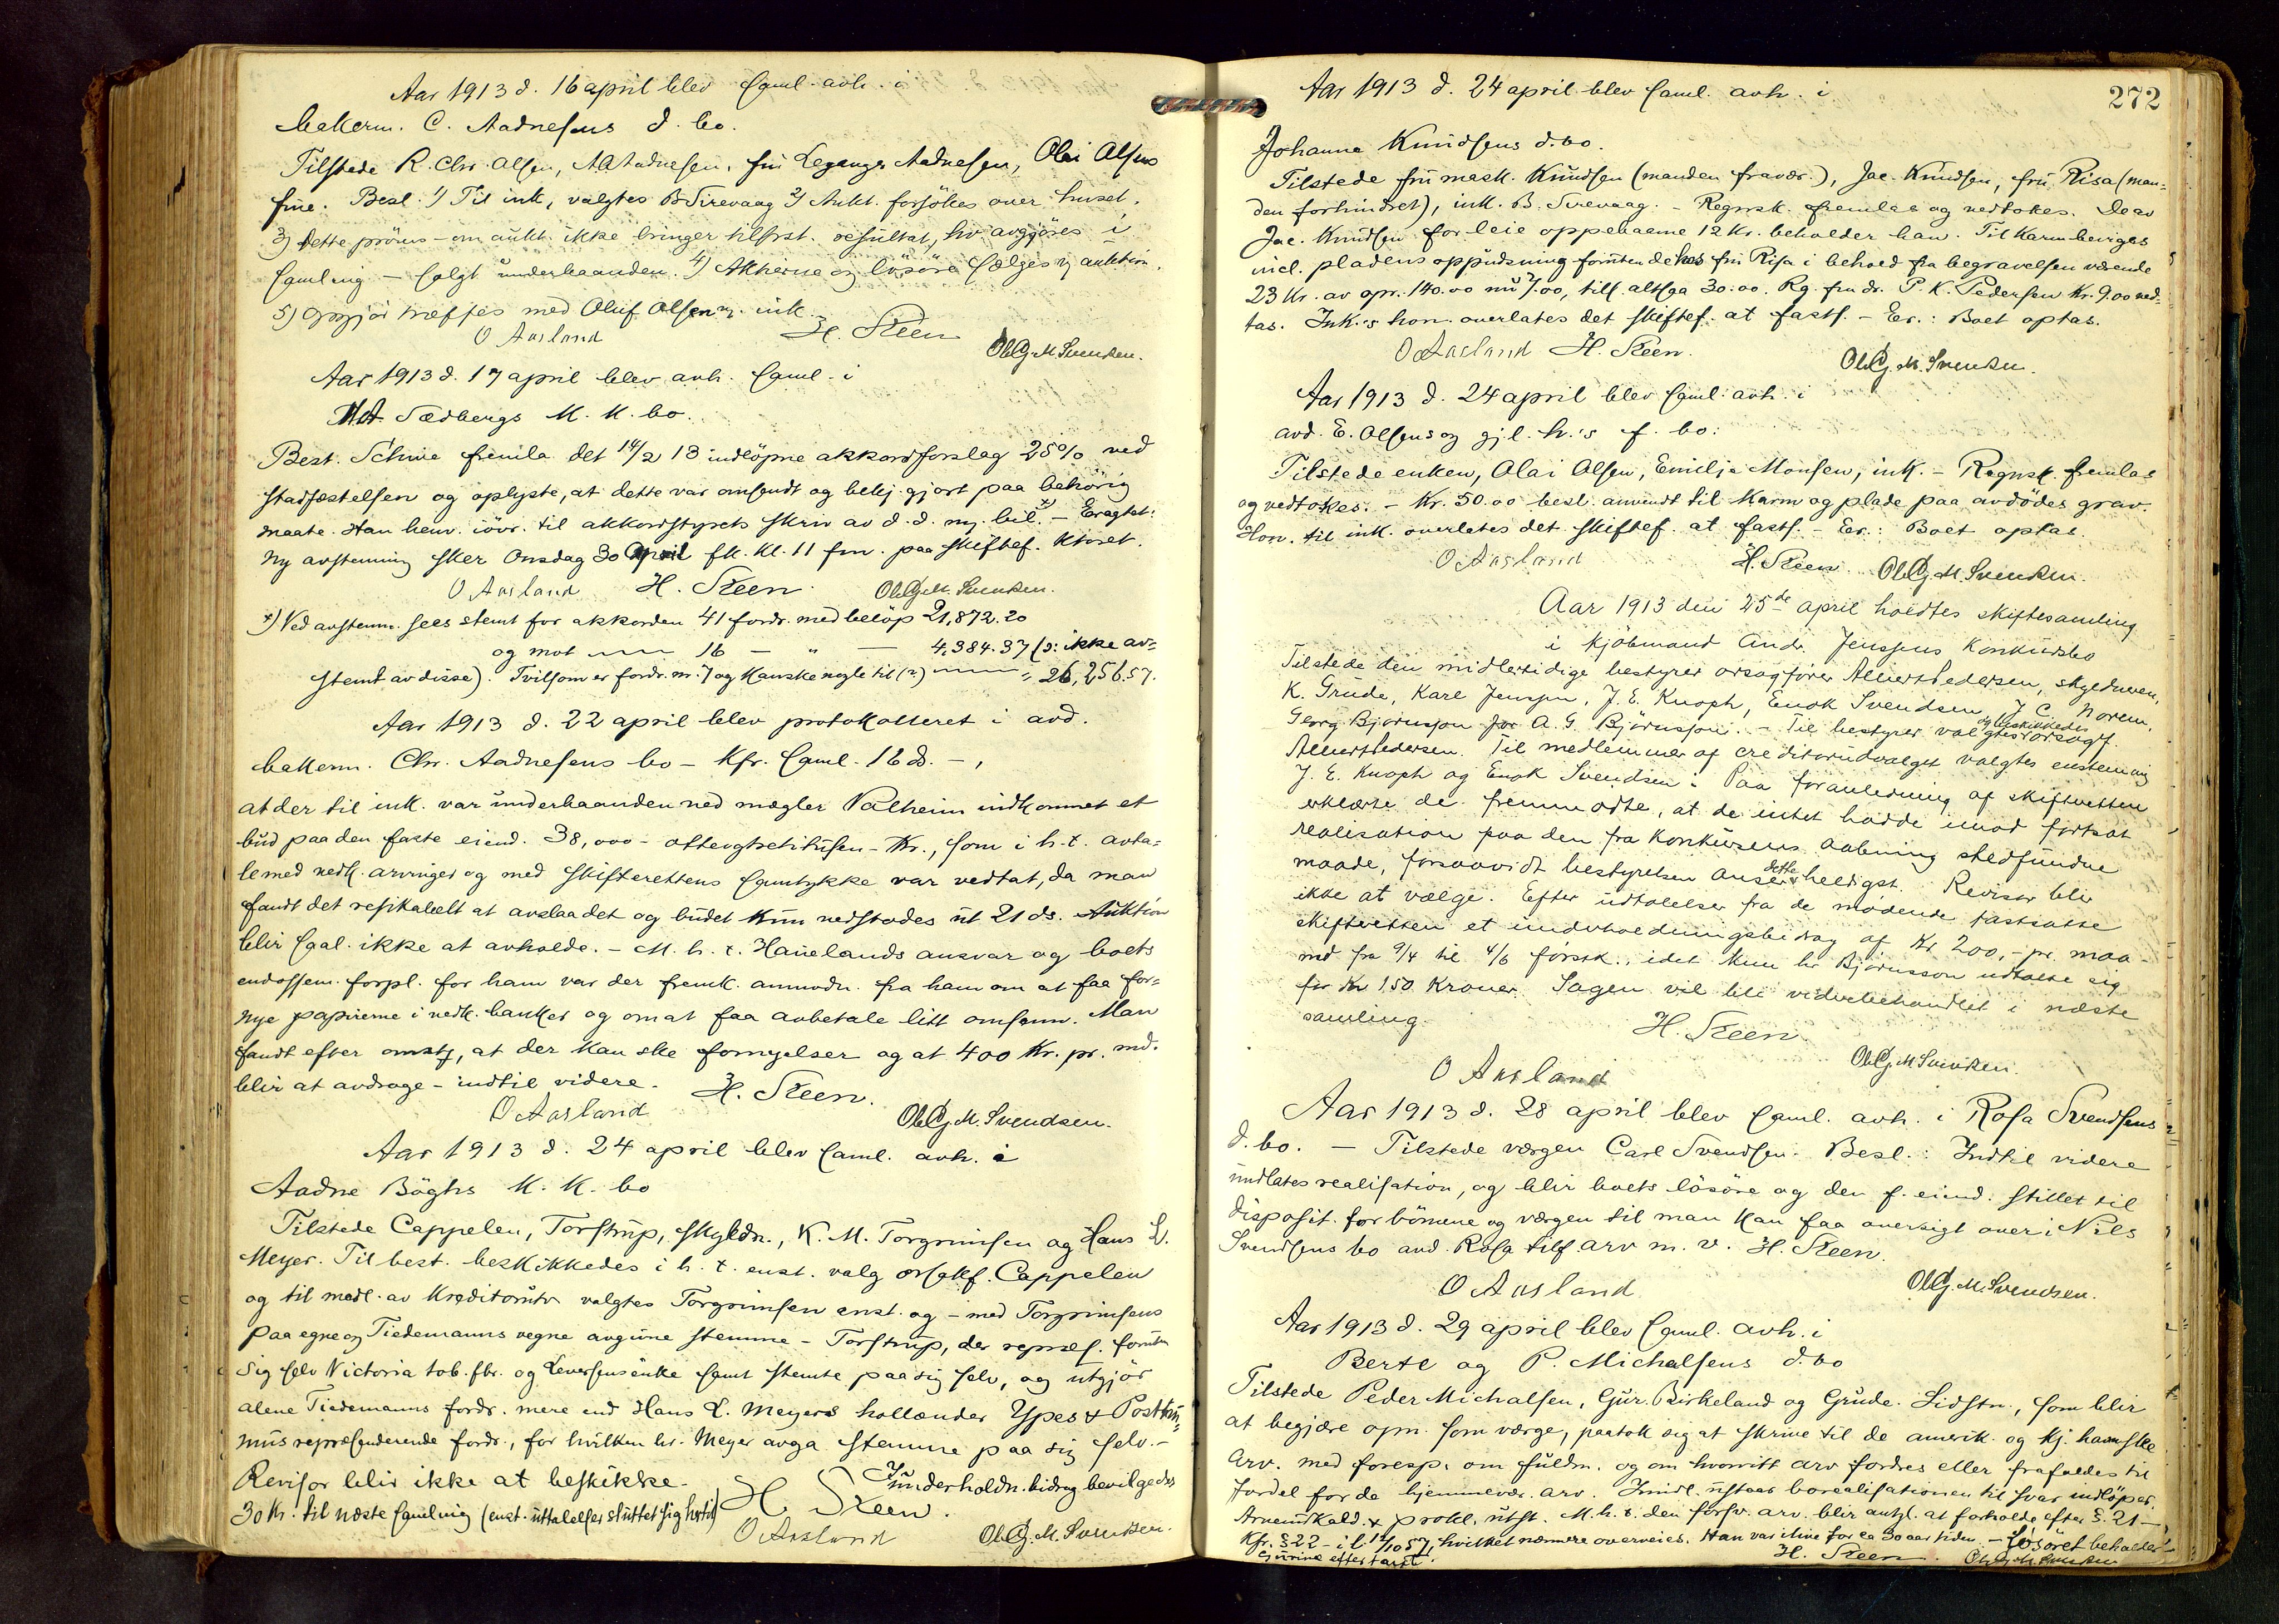 Aar 1913 d. 16 april blev saml. avh. i
bakerm. C. Aadnesens d. bo.
Tilstede R. Chr. Olsen, A. Aadnesen, fru Leganger Aadnesen, Olai Olsens
frue. Besl. 1) Til ink, valgtes B. Sirevaag 2) Aukt. forsökes over huset,
3) Dette pröves – om aukt. ikke bringer tilfrst. resultat, hv. avgjöres i
samling – solgt underhaanden. 4) Aktierne og lösöre sælges v. auktion.
5) Opgjör træffes med Oluf Olsen v. ink.
O Aasland H. Steen
Ole Gj. M. Svendsen.
Aar 1913 d. 17 april blev avh. saml. i
Sædbergs K. K. bo.
Best. Schive fremla det 14/2 13 indlöpne akkordforslag 25% ved
stadfæstelsen og oplyste, at dette var omsendt og bekj. gjort paa behörig
maate. Han henv. iövr. til akkordstyrets skriv av d. d. ny. bil. x) – Eragtet:
Ny avstemning sker Onsdag 30 April fk. kl. 11 fm. paa skiftef. ktoret.
O Aasland H. Steen Ole Gj. M. Svendsen.
x) Ved avstemn. sees stemt for akkorden 41 fordr. med belöp 21,872.20
og mot — 16 — " — 4,384.37 (ɔ: ikke av-
stemt av disse). Tvilsom er fordr. nr. 7 og kanske nogle til (?) — " 26,256.57.
Aar 1913 d. 22 april blev protokolleret i avd.
bakerm. Chr. Aadnesens bo – kfr. saml. 16 ds. – ,
at der til ink. var underhaanden ved mægler Valheim indkommet et
bud paa den faste eiend. 38,000 – otteogtretitusen – Kr., som i h. t. avta-
le med vedk. arvinger og med skifterettens samtykke var vedtat, da man
fandt det risikabelt at avslaa det og budet kun vedstodes ut 21 ds. Auktion
blir saal. ikke at avholde. – M. h. t. Hauelands ansvar og boets
endossem. forpl. for ham var der fremk. anmodn. fra ham om at faa for-
nye papirerne i vedk. banker og om at faa avbetale litt omsenn. Man
fandt efter omstg, at der kan ske fornyelser og at 400 Kr. pr. md.
blir at avdrage – indtil videre. H. Steen.
O Aasland
Ole Gj. M. Svendsen.
Aar 1913 d. 24 april blev saml. avh. i
Aadne Böghs K. K. bo
Tilstede Cappelen, Torstrup, skyldn., K. M. Torgrimsen og Hans L.
Meyer. Til best. beskikkedes i h. t. enst. valg orsakf. Cappelen
og til medl. av kreditorutv valgtes Torgrimsen enst. og – med Torgrimsens
paa egne og Tiedemanns vegne avgivne stemme – Torstrup, der repræs. foruten
sig selv Victoria tob. fbr. og Leversens enke samt stemte paa sig selv, og utgjör
alene Tiedemanns fordr. mere end Hans L. Meyers hollænder Ypes & Posthu-
mus repræsenderende fordr., for hvilken hr. Meyer avga stemme paa sig selv. –
Revisor blir ikke at beskikke. I underholdn. bidrag bevilgedes
30 Kr. til næste samling (enst. uttalelser stuttet sig hertil) H. Steen.
O Aasland Ole Gj. M. Svendsen.
272
Aar 1913 d. 24 april blev saml. avh. i
Johanne Knudsens d. bo.
Tilstede fru mask. Knudsen (manden fravær.), Jac. Knudsen, fru Risa (man-
den forhindret), ink. B. Sirevaag. – Regnsk. fremlaa og vedtokes. De av
Jac. Knudsen for leie oppebaarne 12 Kr. beholder han. Til Karm beviges
incl. pladens oppudsning foruten de hos fru Risa i behold fra begravelsen værende
23 Kr. av opr. 140.00 nu 7.00, tils. altsaa 30.00. Rg. fra dr. P. K. Pedersen Kr. 9.00 ved-
tas. Ink.'s hon. overlates det skiftef. at fasts. – Er.: Boet optas.
O Aasland H. Steen.
Ole Gj. M. Svendsen.
Aar 1913 d. 24 april blev saml. avh. i
avd. E. Olsens og gjl. h.'s f. bo:
Tilstede enken, Olai Olsen, Emilje Monsen, ink. – Regnsk. fremlaa
og vedtokes. – Kr. 50.00 besl. anvendt til Karm og plade paa avdödes grav.
Hon. til ink. overlates det skiftef. at fasts. – Er.: Boet optas.
O Aasland H. Steen. Ole Gj. M. Svendsen.
Aar 1913 den 25de april holdtes skiftesamling
i kjöbmand Andr. Jensens Konkursbo
Tilstede den midlertidige bestyrer orsagförer Albert Pedersen, skyldneren,
K. Grude, Karl Jensen, J. E. Knoph, Enok Svendsen, J. C. Norem,
Georg Björnsson for A. G. Björnsson. – Til bestyrer valgtes og beskikkedes orsagf.
Albert Pedersen. Til medlemmer af creditorudvalget valgtes enstemmig
J. E. Knoph og Enok Svendsen. Paa foranledning af skifteretten
erklærte de fremmødte, at de intet havde imod fortsat
realisation paa den fra konkursens aabning stedfundne
maade, forsaavidt bestyrelsen anser dette heldigst. Revisor blir
ikke at vælge. Efter udtalelser fra de mødende fastsatte
skifteretten et underholdningsbidrag af Kr 200,- pr. maa-
ned fra 9/4 til 4/6 förstk., idet kun hr Björnsson udtalte sig
for Kr 150 Kroner. Sagen vil bli viderebehandlet i næste
samling. H. Steen.
O Aasland
Ole Gj. M. Svendsen.
Aar 1913 d. 28 april blev saml. avh. i Rosa Svendsens
d. bo. – Tilstede værgen Carl Svendsen. Besl.: Indtil videre
undlates realisation, og blir boets lösöre og den f. eiend. stillet til
disposit. for börnene og værgen til man kan faa oversigt over i Nils
Svendsens bo avd. Rosa tilf. arv m. v. H. Steen.
O Aasland
Ole Gj. M. Svendsen.
Aar 1913 d. 29 april blev saml. avh. i
Berte og P. Michalsens d. bo
Tilstede Peder Michalsen, Gur. Birkeland og Grude. Sidstn., som blir
at begjære opn. som værge, paatok sig at skrive til de amerik. og kj. havnske
arv. med foresp. om fuldm. og om hvorvitt arv fordres eller frafaldes til
fordel for de hjemmevær. arv. Imidl. utstaar borealisationen til svar indlöper.
Arveindkald. & prokl. utst. M. h. t. den forsv. arv. blir antgl. at forholde efter §. 21 –
Kfr. § 22 – i l. 12/10 57, hvilket nærmere overveies. Han var ilive for ca 30 aar siden. – Lösöret beholder
Gurine efter taxt. H. Steen. Ole Gj. M. Svendsen